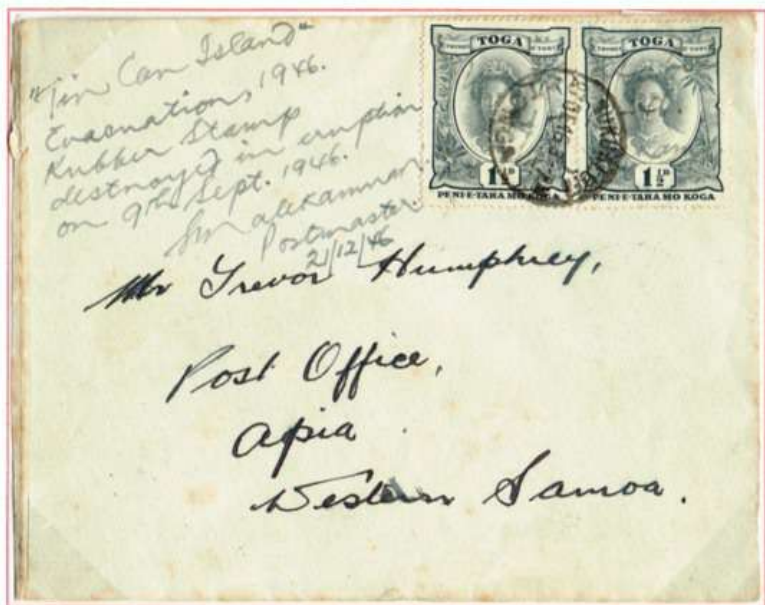 "Tin Can Island"
Evacuation, 1946.
Rubber Stamp
destroyed in eruption
on 9th Sept. 1946.
Postmaster.
2/12/46
TOGA
1½D
PENI E TAHA MO KOGA
TOGA
1½D
PENI E TAHA MO KOGA
Mr Trevor Humphrey,
Post Office,
Apia
Western Samoa.